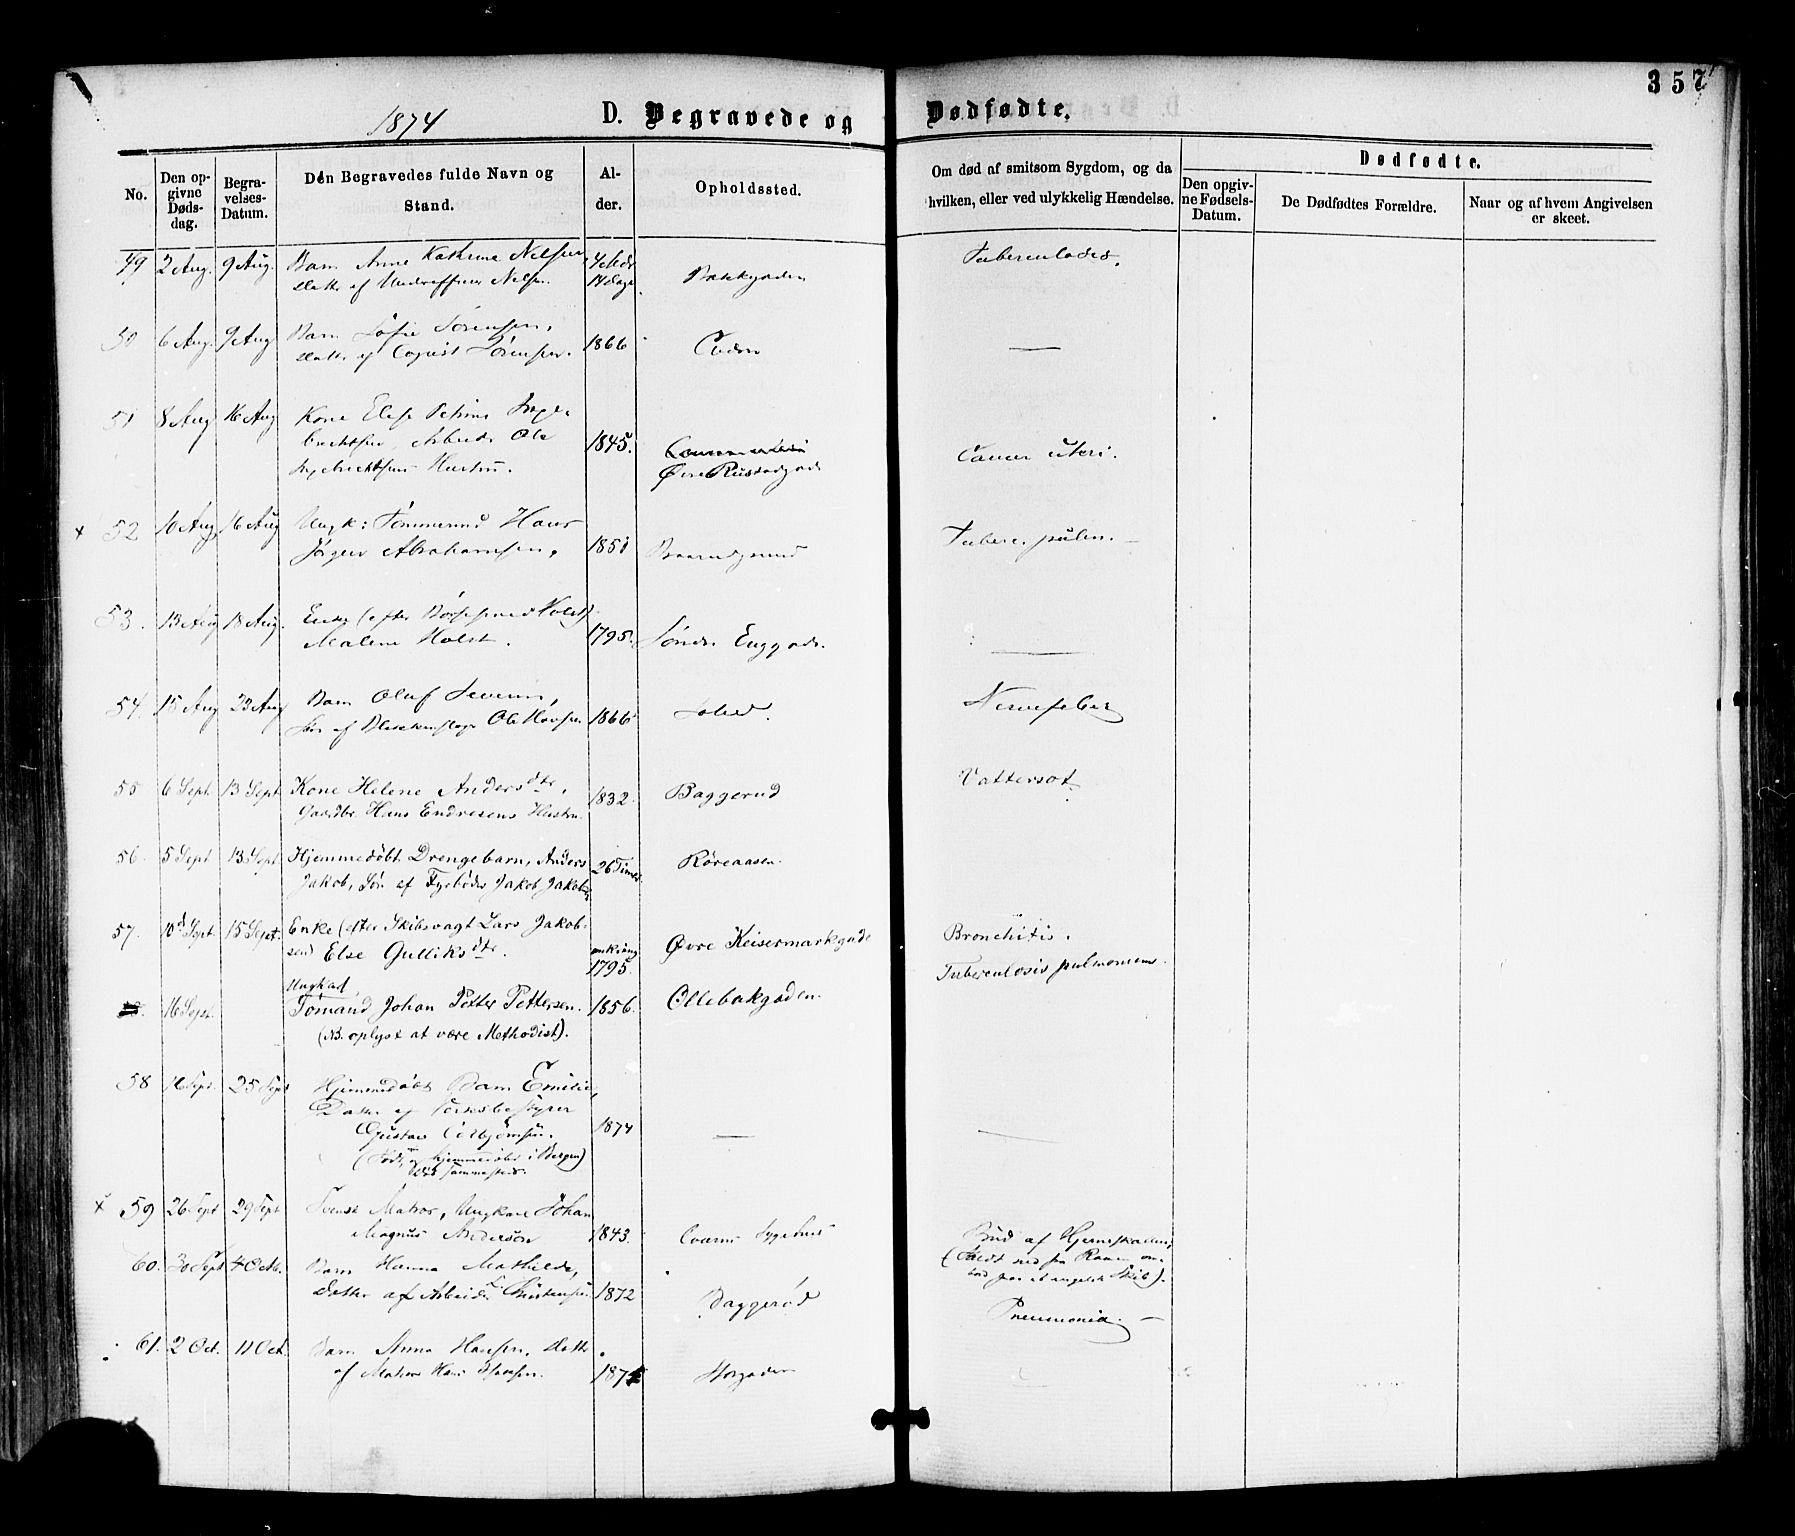 357
1874
D. Begravede og Dødfødte.
No.
Den opgivne Dødsdag.
Begravelses-Datum.
Den Begravedes fulde Navn og Stand.
Alder.
Opholdssted.
Om død af smitsom Sygdom, og da hvilken, eller ved ulykkelig Hændelse.
Dødfødte.
Den opgivne Fødsels-Datum.
De Dødfødtes Forældre.
Naar og af hvem Angivelsen er skeet.
49 2 Aug. 9 Aug. Barn Anne Kathrine Nilsen,
Datter af Nilsen. 14 Dage
50 6 Aug. 9 Aug Barn Sofie Sørensen,
Datter af Sørensen. 1866 —
51 8 Aug 16 Aug Kone Else Petrine Inge-
brektsen, Arbeider Ole
Ingebrektsens Hustru. 1845. Øvre Cancer uteri.
× 52 10 Aug. 16 Aug Ungk: Tømmermd Hans
Jørgen Abrahamsen. 1851 Tuberc. pulm. —
53. 13 Aug 18 Aug. Enke (efter Holst)
Malene Holst. 1795. Søndre Enggade. —
54. 15 Aug 23 Aug Barn Oluf Severin,
Søn af Ole 1866 Nervefeber
55 6 Sept. 13 Sept Kone Helene Andersdtr,
Gaardbr. Hans Endresens Hustru. 1832. Baggerud Vattersot.
56. 5 Sept 13 Sept Hjemmedøbt Drengebarn, Anders
Jakob, Søn af Fyrbøder Jakob Jakobsen 26 Timer. Røreaasen.
57. 10d Sept. 15 Sept. Enke (efter Skibsvagt Lars Jakob-
sen) Else Gulliksdtr. omkring 1795. Øvre Keisermarkgade Bronchitis.
Ungkarl,
16 Sept. Tømmd Johan Petter Pettersen. 1856. Ollebakgaden. Tuberculosis pulmonum.
(NB. oplyst at være Methodist).
58 16 Sept. 25 Sept Hjemmedøbt Barn Emilie,
Datter af
Gustav 1874 — —
(Født og hjemmedøbt i Bergen)
Død sammesteds.
× 59 26 Sept 29 Sept Svensk Matros, Ungkarl Johan
Magnus Anderson 1843. Sygehus Brud af Hjerneskallen,
(Faldt ned fra Raaen om-
bord paa et engelsk Skib).
60. 30 Sept 4 Octb. Barn Hanna Mathilde,
Datter af Arbeider Christensen 1872 Baggerød Pneumonia. —
61. 2 Oct. 11 Oct. Barn Anna Hansen, Datter
af Matros Hans Hansen. 1874 Storgaden